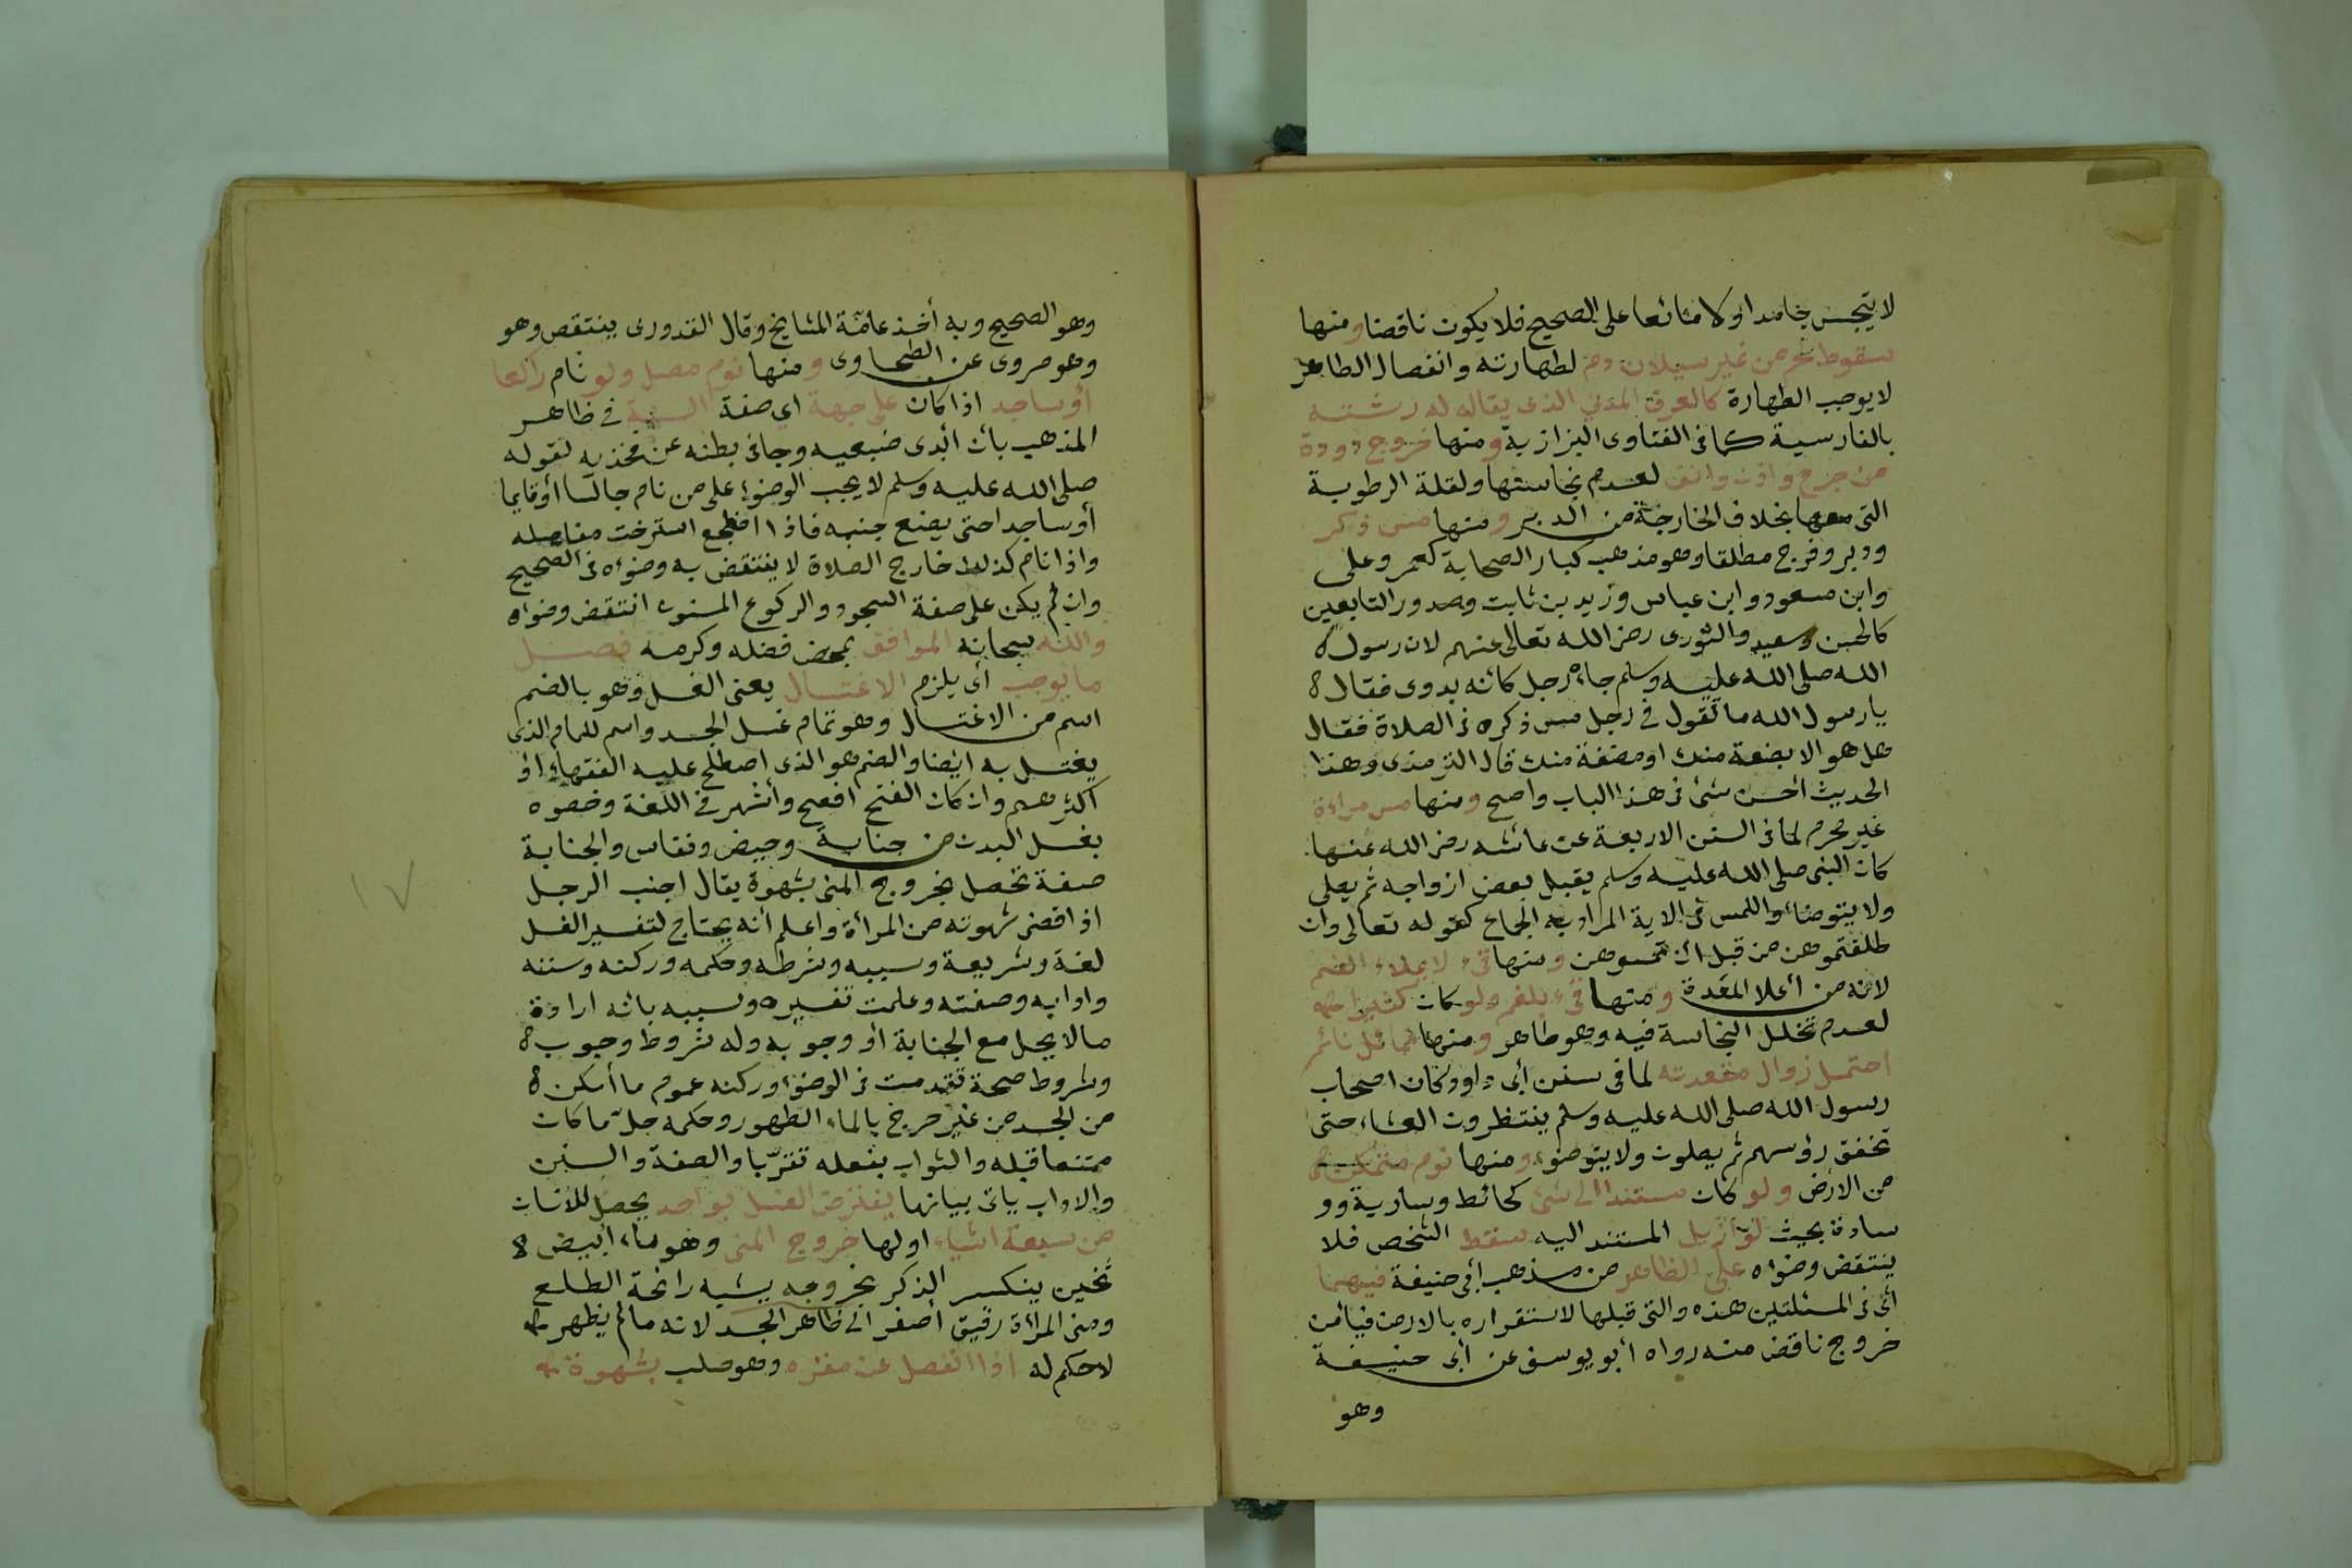 لا يتجس جامدا ولا مائعا على الصحيح فلا يكون ناقضا ومنها
سقوط لحم من غير سيلان دم لطهارته وانفصال الطاهر
لا يوجب الطهارة كالعرق المدني الذى يقال له رشته
بالفارسية كما فى الفتاوى البزازية ومنها خروج دودة
من جرح واذن وانف لعدم نجاستها ولقلة الرطوبة
التى معها بخلاف الخارجة من الدبر ومنها مس ذكر
ودبر وفرج مطلقا وهو مذهب كبار الصحابة كعمر وعلى
وابن مسعود وابن عباس وزيد بن ثابت وصدور التابعين
كالحسن وسعيد والثورى رضى الله تعالى عنهم لان رسول
الله صلى الله عليه وسلم جاءه رجل كأنه بدوى فقال
يا رسول الله ما تقول فى رجل مس ذكره فى الصلاة فقال
هل هو الا بضعة منك او مضغة منك قال الترمذى وهذا
الحديث أحسن شئ فى هذا الباب واصح ومنها مس مراءة
غير محرم لما فى السنن الاربعة عن عائشه رضى الله عنها
كان النبى صلى الله عليه وسلم يقبل بعض ازواجه ثم يصلى
ولا يتوضاء واللمس فى الاية المراد به الجماع كقوله تعالى وان
طلقتموهن من قبل أن تمسوهن ومنها قىء لا يملاء الفم
لانه من أعلا المعدة ومنها قىء بلغم ولو كان كثيرا
لعدم تخلل النجاسة فيه وهو طاهر ومنها تمائل نائم
احتمل زوال مقعدته لما فى سنن أبى داود كان اصحاب
رسول الله صلى الله عليه وسلم ينتظرون العشاء حتى
تخفق رؤسهم ثم يصلون ولا يتوضوء ومنها نوم متمكن
من الارض ولو كان مستندا الى شئ كحائط وسارية وو
سادة بحيث لو أزيل المستند اليه سقط الشخص فلا
ينتقض وضوأه على الظاهر من مذهب أبى حنيفة فيهما
أى فى المسئلتين هذه والتى قبلها لاستقراره بالارض فيأمن
خروج ناقض منه رواه أبو يوسف عن أبى حنيفة
وهو
وهو الصحيح وبه أخذ عامّة المشايخ وقال القدورى ينتقض وهو
وهو مروى عن الطحاوى ومنها نوم مصل ولو نام راكعا
أو ساجد اذا كان على جهة اى صفة السنة فى ظاهر
المذهب بان أبدى ضبعيه وجافى بطنه عن فخذيه لقوله
صلى الله عليه وسلم لا يجب الوضوء على من نام جالسا أو قايما
أو ساجدا حتى يضع جنبه فاذا اضطجع استرخت مفاصله
واذا نام كذلك خارج الصلاة لا ينتقض به وضوءه فى الصحيح
وان لم يكن على صفة السجود والركوع المسنون انتقض وضوأه
والله سبحانه الموافق بمحض فضله وكرمه فصل
ما يوجب أى يلزم الاغتسال يعنى الغسل وهو بالضم
اسم من الاغتسال وهو تمام غسل الجسد واسم للماء الذى
يغتسل به ايضا والضم هو الذى اصطلح عليه الفقهاء او
أكثرهم وان كان الفتح افصح وأشهر فى اللغة وخصوه
بغسل البدن من جنابة وحيض ونفاس والجنابة
صفة تحصل بخروج المنى بشهوة يقال اجنب الرجل
اذا قضى شهوته من المرأة واعلم أنه يحتاج لتفسير الغسل
لغة وشريعة وسببه وشرطه وحكمه وركنه وسننه
وادابه وصفته وعلمت تفسيره وسببه بانه ارادة
ما لا يحل مع الجنابة أو وجوبه وله شروط وجوب
وشروط صحة تقدمت فى الوضوء وركنه عموم ما أمكن
من الجسد من غير حرج بالماء الطهور وحكمه حلّ ما كان
ممتنعا قبله والثواب بفعله تقرّبا والصفة والسنن
والاداب ياتى بيانها يفترض الغسل بواحد يحصل للانسان
من سبعة اشياء اولها خروج المنى وهو ماء أبيض
ثخين ينكسر الذكر بخروجه يشبه رائحة الطلع
ومنى المرأة رقيق أصفر الى ظاهر الجسد لانه ما لم يظهر
لا حكم له اذا انفصل عن مقره وهو صلب بشهوة
١٧